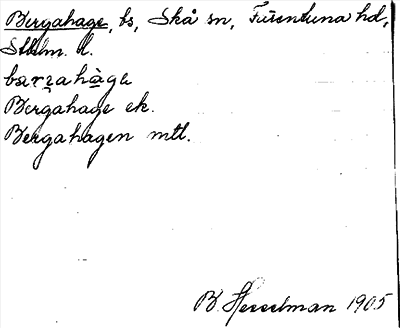 Bergahage, bs, Skå sn, Färentuna hd,
Sthlm l.
Bergahage ek.
Bergahagen mtl.
B. Hesselman 1905